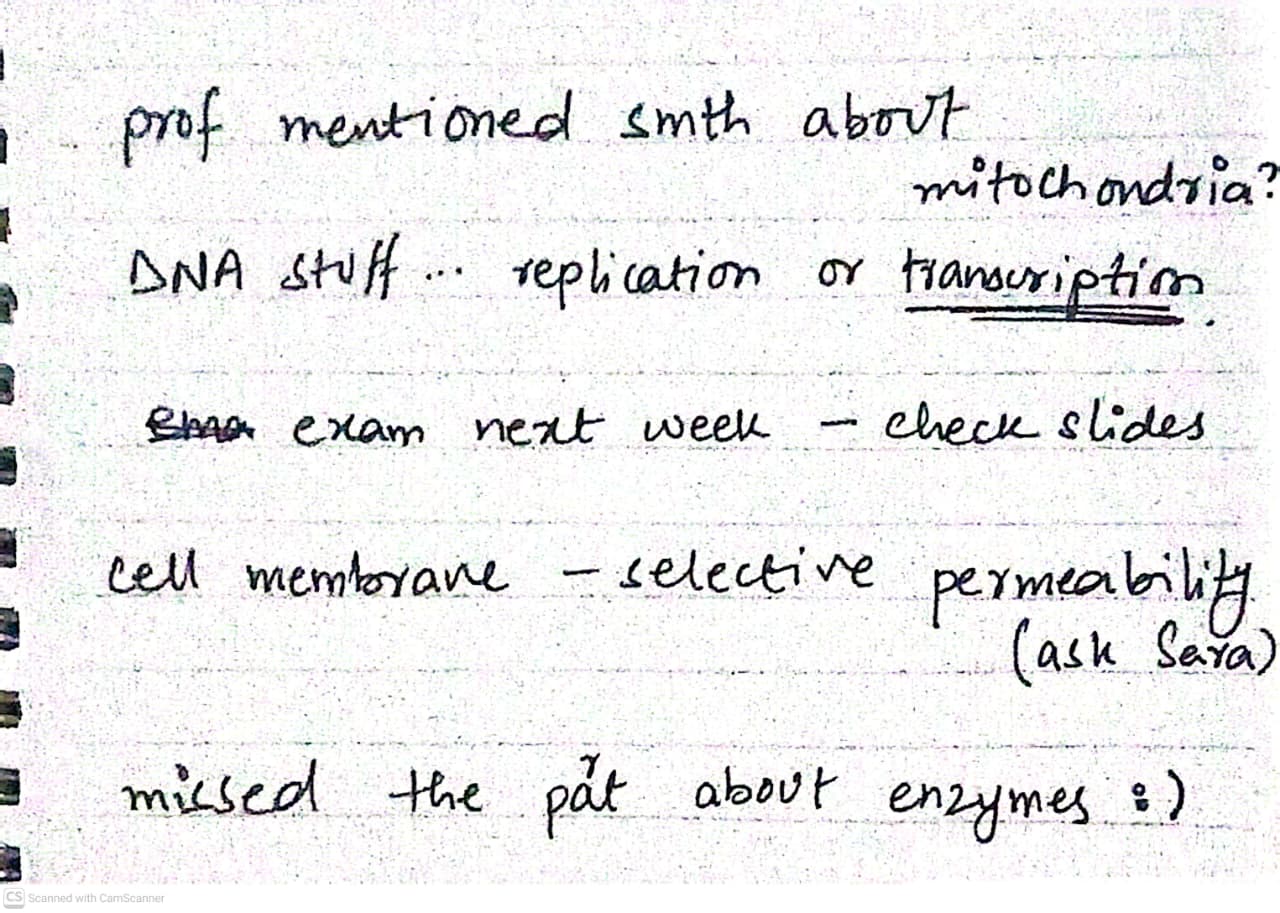 prof mentioned smth about
mitochondria?
DNA stuff ... replication or transcription.
exam next week - check slides
cell membrane - selective permeability
(ask Sara)
missed the part about enzymes :)
CS Scanned with CamScanner